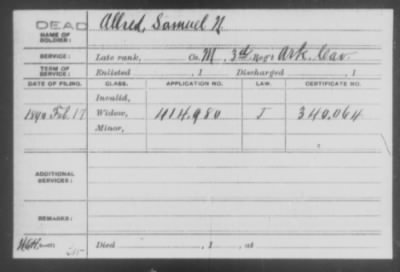 DEAD Allred, Samuel N.
NAME OF SOLDIER:
SERVICE: Late rank, Co. M, 3rd Reg't Ark. Cav.
TERM OF SERVICE: Enlisted , 1 Discharged , 1
DATE OF FILING. CLASS. APPLICATION NO. LAW. CERTIFICATE NO.
Invalid,
1890 Feb. 17 Widow, 414,980 J 340,064
Minor,
ADDITIONAL SERVICES:
REMARKS:
Died , 1 , at